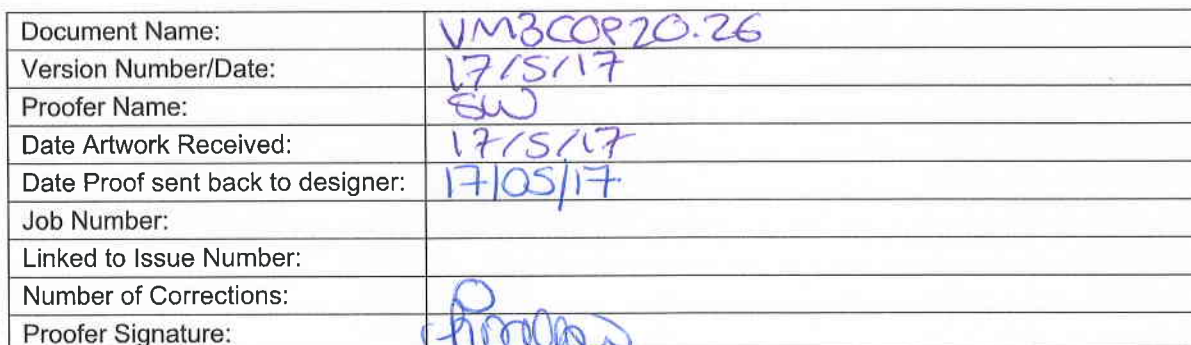 Document Name: VM3COP20.26
Version Number/Date: 17/5/17
Proofer Name: SW
Date Artwork Received: 17/5/17
Date Proof sent back to designer: 17/05/17
Job Number:
Linked to Issue Number:
Number of Corrections: 0
Proofer Signature: